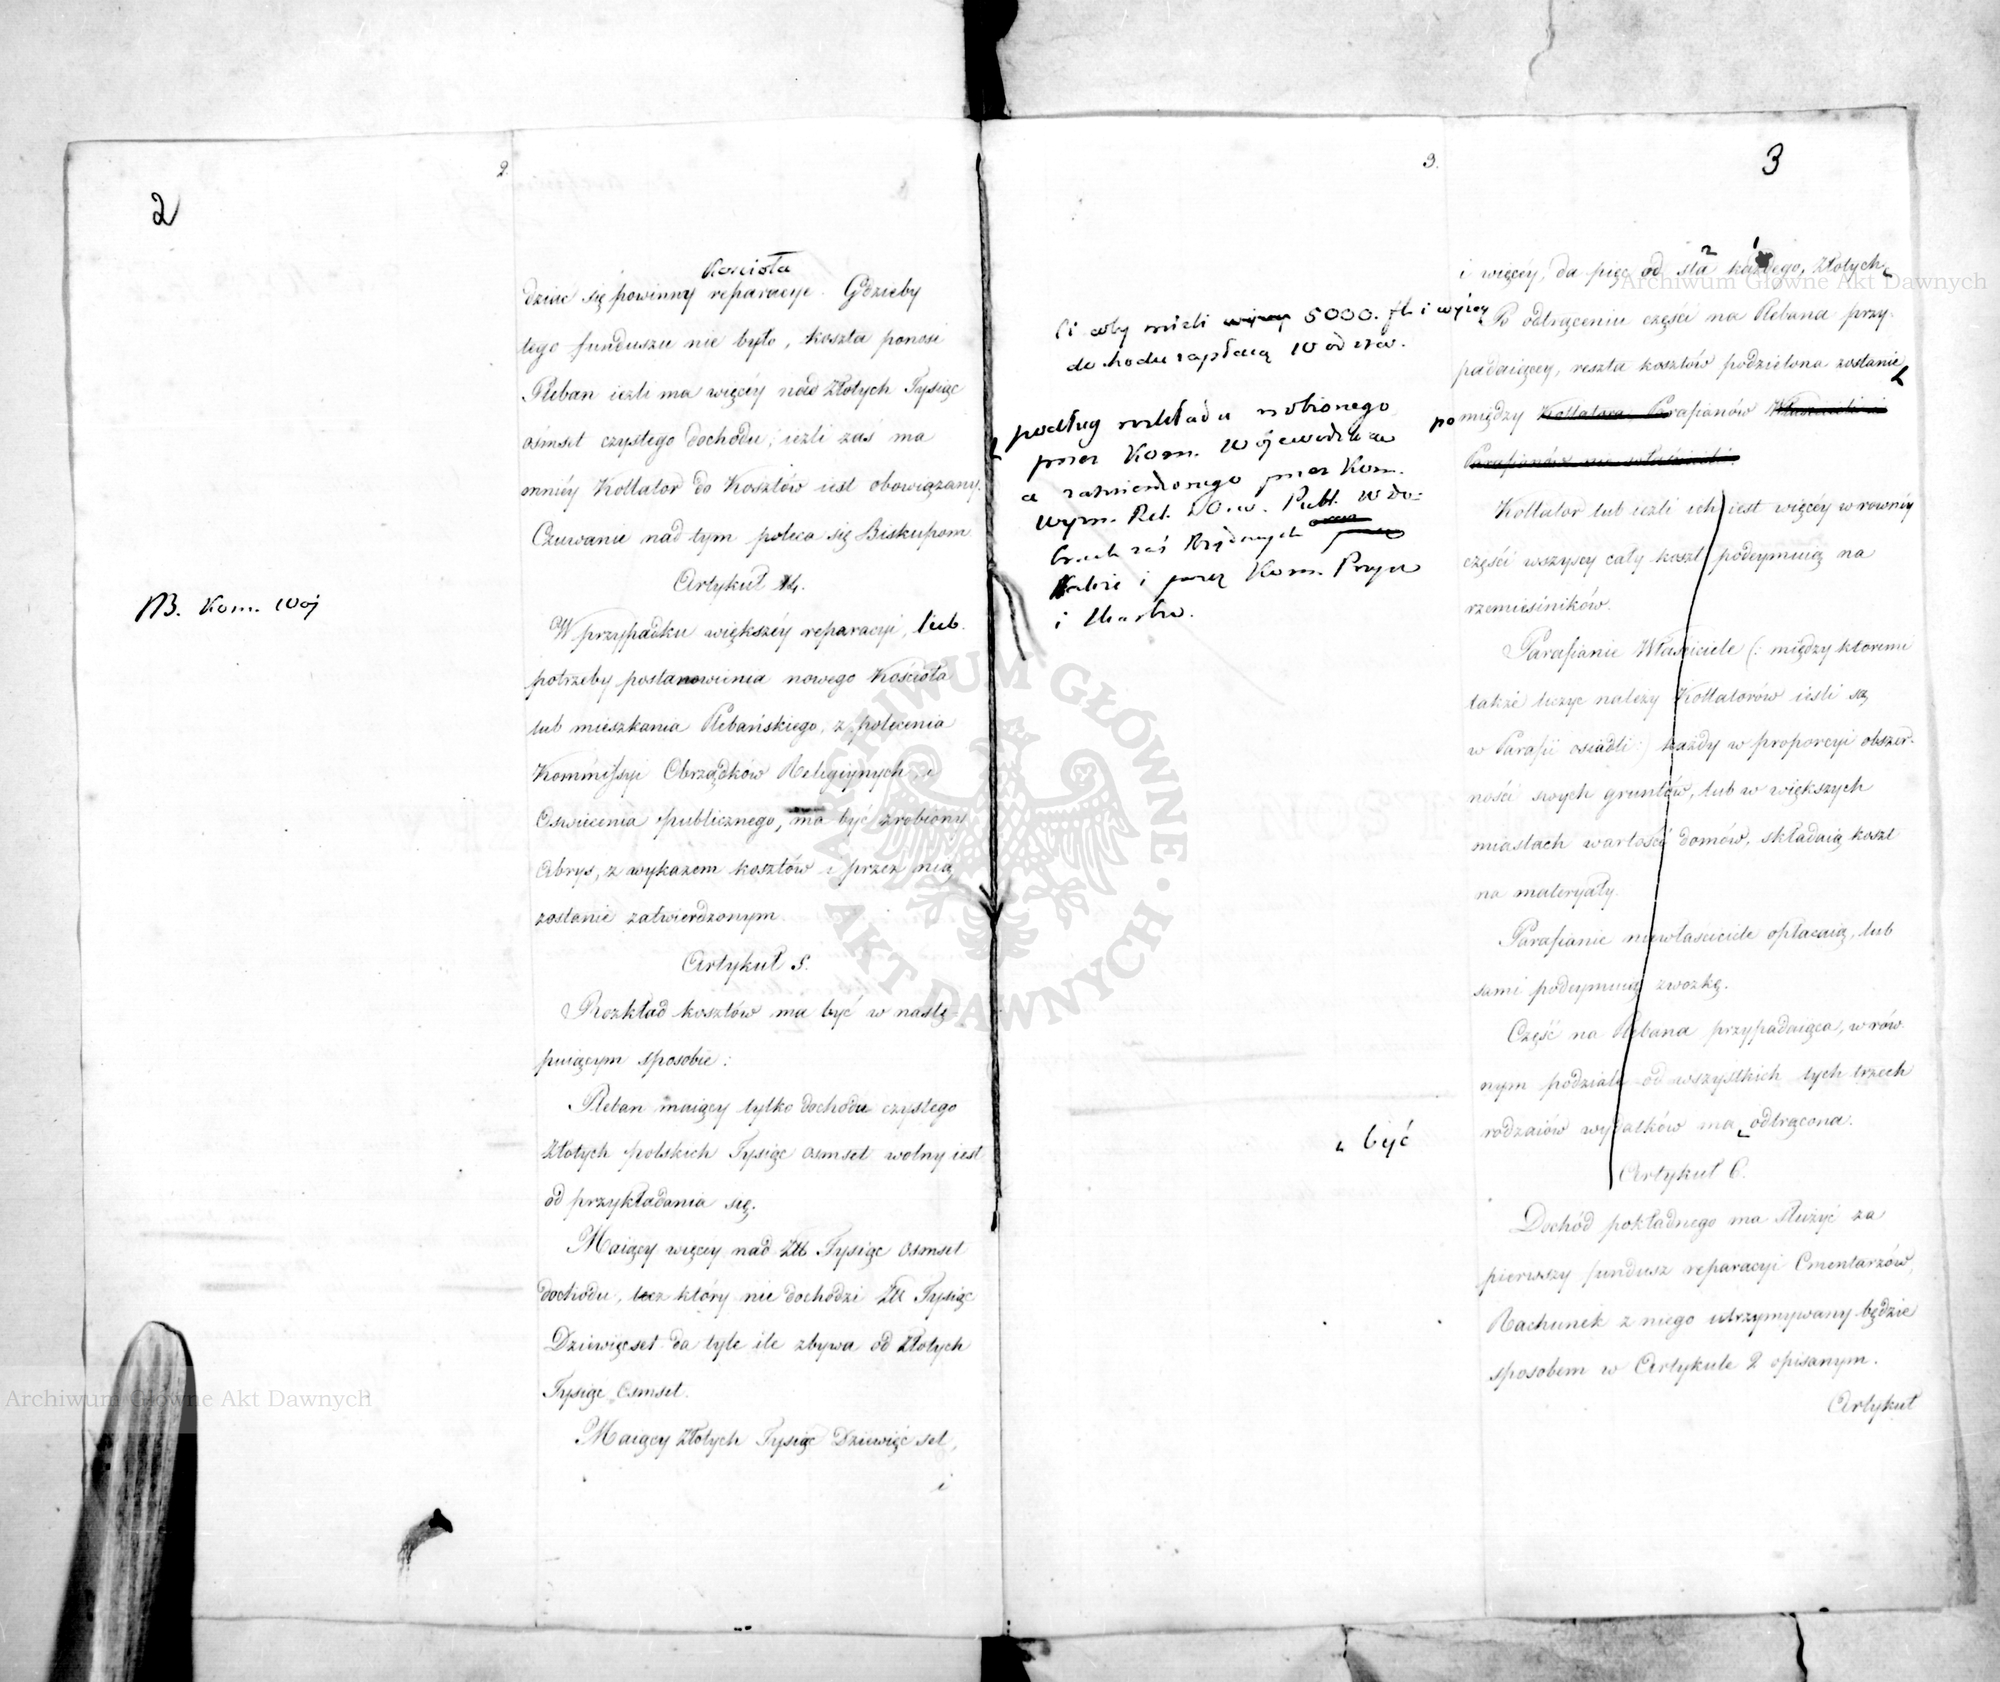 2
2.
NB. Kom. Woj
Kościoła
dziać się powinny reparacye. Gdzieby
tego funduszu nie było, koszta ponosi
Pleban ieżli ma więcéy nad Złotych Tysiąc
ośmset czystego dochodu; ieżli zaś ma
mniéy Kollator do Kosztów iest obowiązany.
Czuwanie nad tym poleca się Biskupom
Artykuł 4.
W przypadku większéy reparacyi, lub
potrzeby postanowienia nowego Kościoła
lub mieszkania Plebańskiego, z polecenia
Kommissyi Obrządków Religiynych i
Oświecenia publicznego, ma być zrobiony
Abrys, z wykazem kosztów i przez nią
zostanie zatwierdzonym
Artykuł 5.
Rozkład kosztów ma być w nastę-
puiącym sposobie:
Pleban maiący tylko dochodu czystego
Złotych polskich Tysiąc osmset wolny iest
od przykładania się.
Maiący więcéy nad Złł Tysiąc osmset
dochodu, lecz który nie dochodzi Złł Tysiąc
Dziewięcset da tyle ile zbywa od Złotych
Tysiąc Osmset.
Maiący Złotych Tysiąc Dziewięc set,
i
3.
3
Ci coby mieli 5000. fl. i więcej
dochodu zapłacą
podług rozkładu zrobionego
przez Kom. Wojewódzka
a zatwierdzonego przez Kom.
Wym. Rel. i O. Publ. W do-
brach zaś Rządowych
także i przez Kom. Przyn
i Skarbu.
być
i więcéy, da pięc od sta każdego, Złotych
Po odtrąceniu części na Plebana przy-
padaiącey, reszta kosztów podzielona zostanie
pomiędzy Kollatora, Parafianów Właścicieli i
Parafianów nie właścicieli.
Kollator lub ieżli ich iest więcéy w równéy
części wszyscy cały koszt podeymuią na
rzemieśników.
Parafianie Właściciele (: między ktoremi
także liczyc należy Kollatorów iesli są
w Parafii osiadli :) każdy w proporcyi obszer-
ności swych gruntów, lub w większych
miastach wartości domów, składaią koszt
na materyały.
Parafianie niewłaściciele opłacaią, lub
sami podeymuią zwozkę.
Część na Plebana przypadaiąca, w rów-
nym podziale od wszystkich tych trzech
rodzaiów wydatków ma odtrącona.
Artykuł 6.
Dochód pokładnego ma służyć za
pierwszy fundusz reparacyi Cmentarzów,
Rachunek z niego utrzymywany będzie
sposobem w Artykule 2 opisanym.
Artykuł
Archiwum Główne Akt Dawnych
ARCHIWUM GŁÓWNE AKT DAWNYCH
Archiwum Główne Akt Dawnych